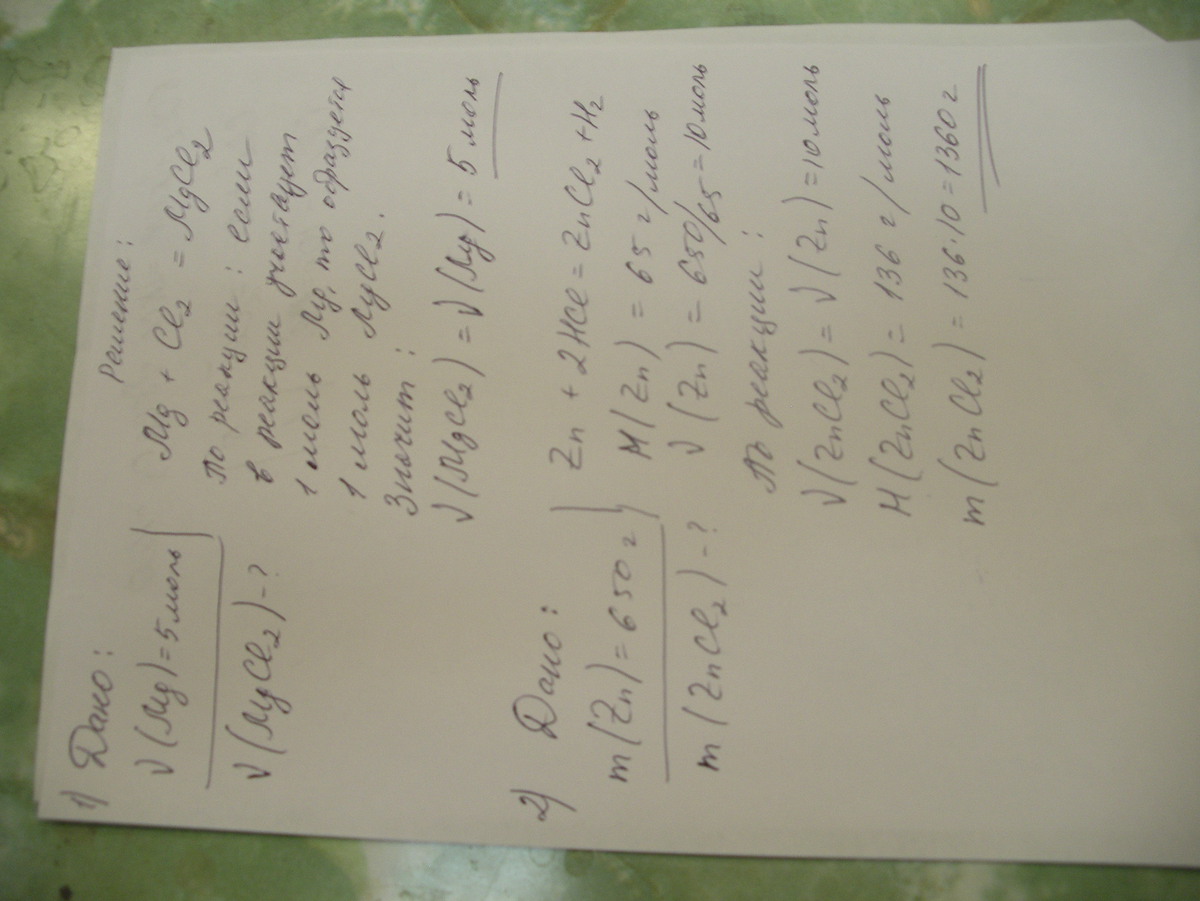 1) Дано:
ν(Mg)=5моль
ν(MgCl2)-?
Решение:
Mg + Cl2 = MgCl2
По реакции: если
в реакции участвует
1 моль Mg, то образуется
1 моль MgCl2.
Значит:
ν(MgCl2) = ν(Mg) = 5 моль
2) Дано:
m(Zn)=650г
m(ZnCl2)-?
Zn + 2HCl = ZnCl2 + H2
M(Zn) = 65 г/моль
ν(Zn) = 650/65 = 10моль
По реакции:
ν(ZnCl2) = ν(Zn) = 10моль
M(ZnCl2) = 136 г/моль
m(ZnCl2) = 136·10 = 1360г